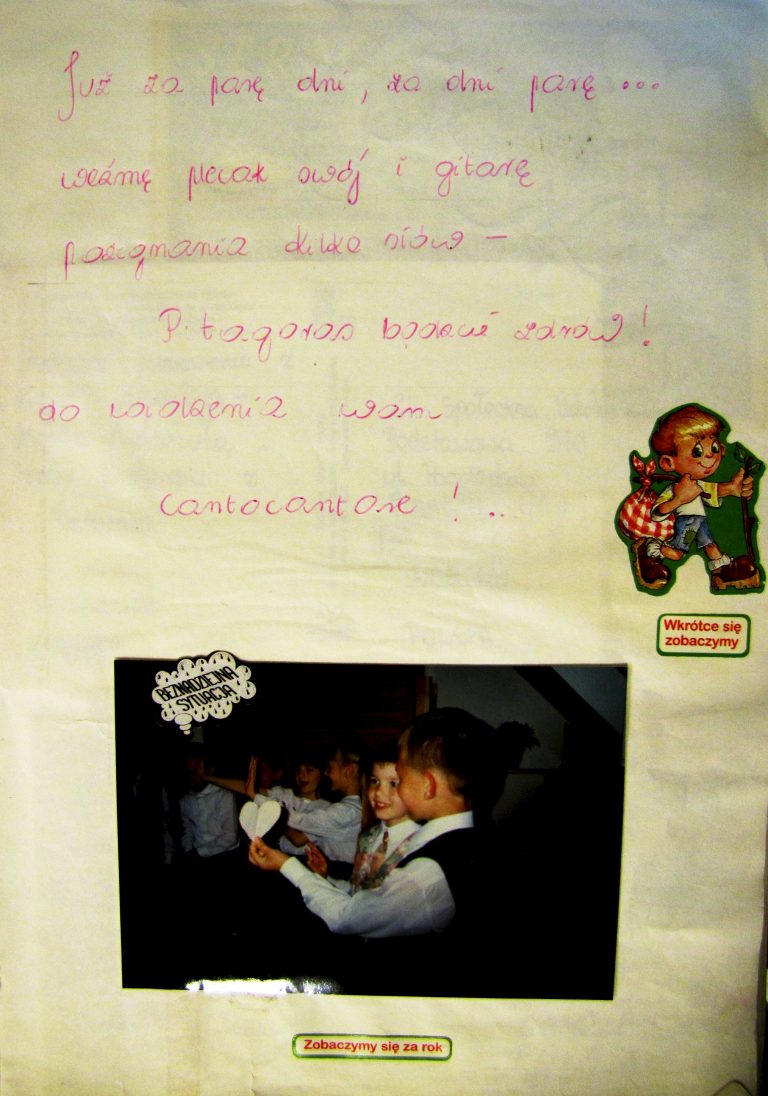 Już za parę dni, za dni parę...
weźmę plecak swój i gitarę
pożegnania kilka słów -
Pitagoras bądźcie zdrów!
do widzenia wam
cantocantare! ..
Wkrótce się
zobaczymy
BEZNADZIEJNA
SYTUACJA
Zobaczymy się za rok